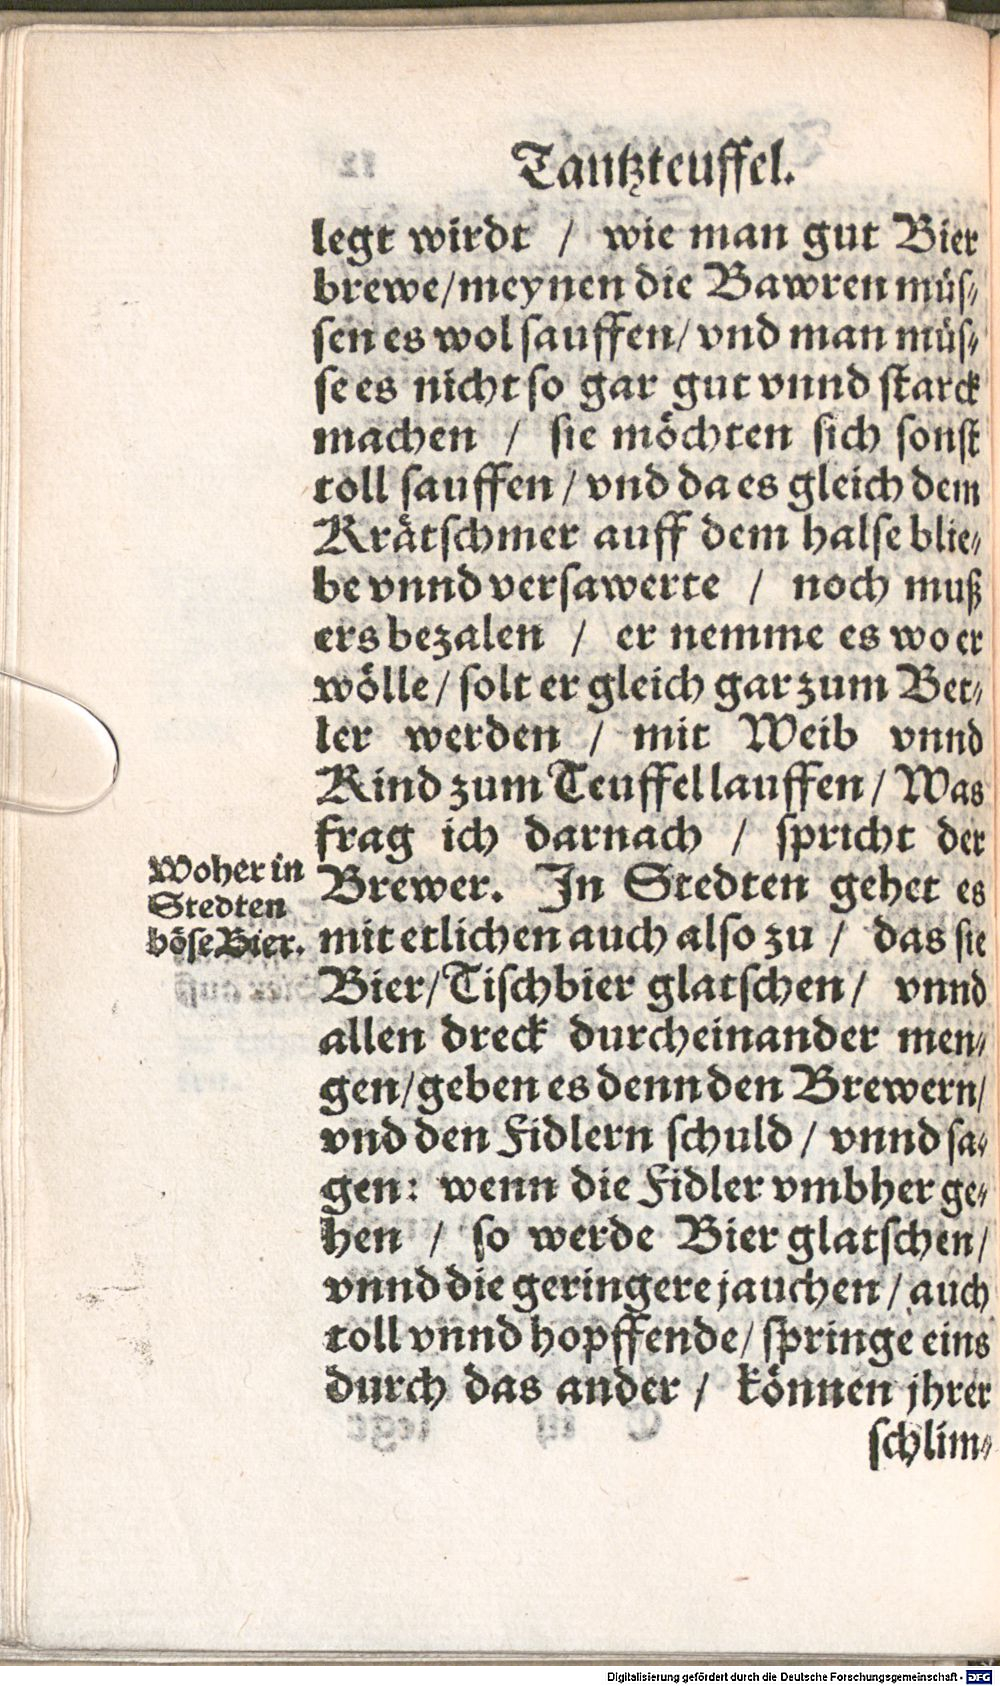 Tantzteuffel.
legt wirdt / wie man gut Bier
brewe/meynen die Bawren müs-
sen es wol sauffen/ vnd man müs-
se es nicht so gar gut vnnd starck
machen / sie möchten sich sonst
toll sauffen / vnd da es gleich dem
Krätschmer auff dem halse blie-
be vnnd versawerte / noch muß
ers bezalen / er nemme es wo er
wölle/ solt er gleich gar zum Bet-
ler werden / mit Weib vnnd
Kind zum Teuffel lauffen / Was
frag ich darnach / spricht der
Brewer. In Stedten gehet es
mit etlichen auch also zu / das sie
Bier/Tischbier glatschen/ vnnd
allen dreck durcheinander men-
gen/geben es denn den Brewern/
vnd den Fidlern schuld / vnnd sa-
gen: wenn die Fidler vmbher ge-
hen / so werde Bier glatschen/
vnnd die geringere jauchen / auch
toll vnnd hopffende/ springe eins
durch das ander / können jhrer
schlim-
Woher in
Stedten
böse Bier.
Digitalisierung gefördert durch die Deutsche Forschungsgemeinschaft - DFG